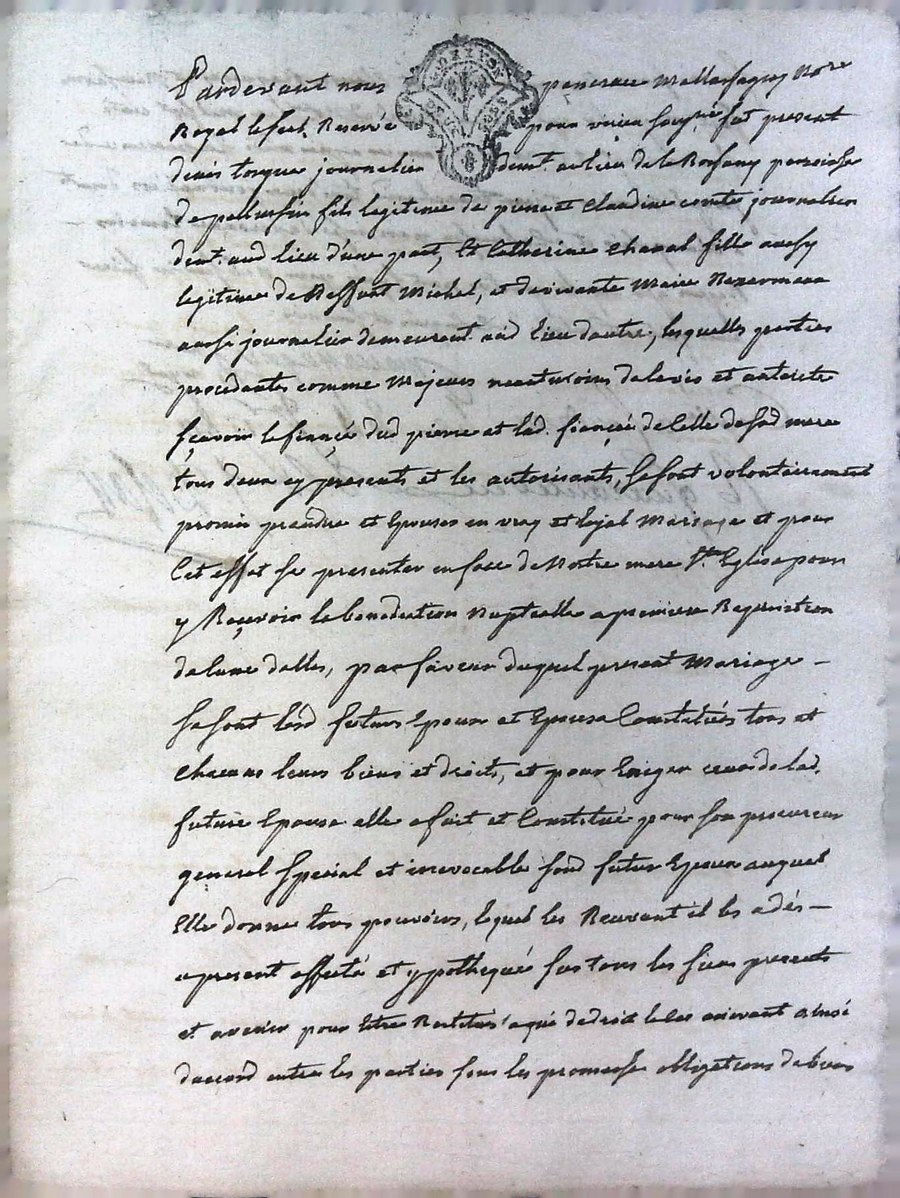 Pardevant nous pancrace Mallassagny Nore
Royal le fort Reservée pour soussigné fut present
denis torgue journalier demt. au lieu de la Rossany paroisse
de pellussin fils legitime de pierre et Claudine comte journalier
demt. aud lieu d'une part, Et Catherine Chaval fille aussy
legitime de deffunt Michel, et de vivante Marie
aussi journalier demeurant aud lieu dautre, lesquelles parties
procedantes comme Majeurs neantmoins de lavis et autorité
sçavoir le fiancé dud pierre et lad. fiancée de Celle de sad mere
tous deux cy presents et les autorisants, se sont volontairement
promis prendre et Epouser en vray et loyal Mariage et pour
Cet effet se presenter en face de Notre mere Ste Eglise pour
y Reçevoir la benediction Nuptialle a premiere Requisition
de lune delles, par faveur duquel present Mariage –
se sont lesd futurs Epoux et Epouse Constitués tous et
chacuns leurs biens et droits, et pour Exiger ceux de lad.
future Epouse elle a fait et Constitué pour son procureur
general special et irrevocable sond futur Epoux auquel
Elle donne tous pouvoirs, lequel les Recevant il les a dés –
apresent affecté et ypothequé sur tous les siens presents
et avenir pour Etre Restitué a qui de droit le cas arrivant ainsi
daccord entre les parties sous les promesse obligations de biens